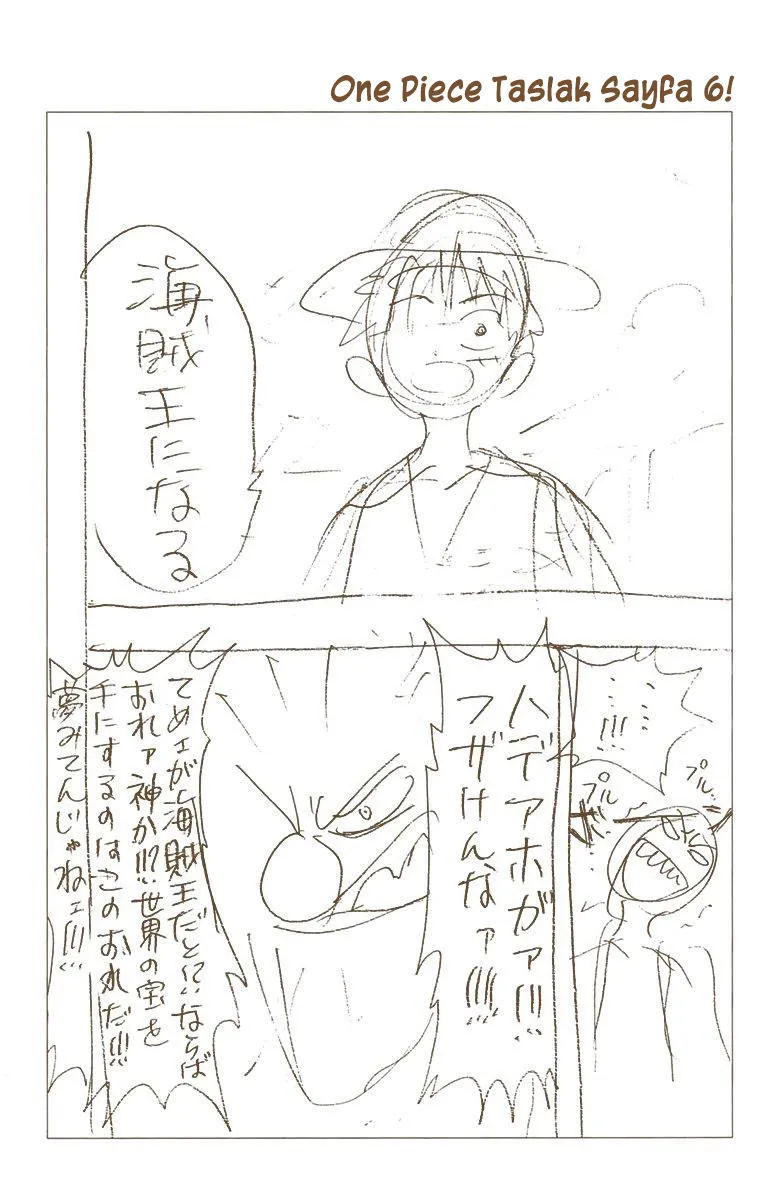 One Piece Taslak Sayfa 6!
海賊
王に
なる
…‥!!!
プル‥
プル
ハデアホがァ!!!
フザけんなァ!!!!
てめェが海賊王だと!?ならば
おれァ神か!!?世界の宝を
手にするのはこのおれだ!!!
夢みてんじゃねェ!!!